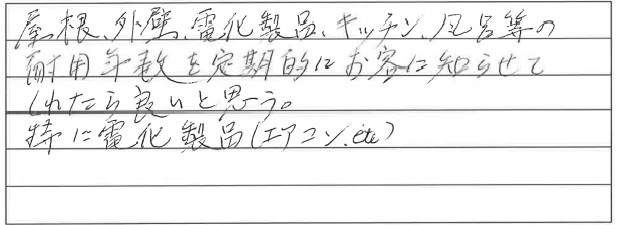 屋根、外壁、電化製品、キッチン、風呂等の
耐用年数を定期的にお客に知らせて
くれたら良いと思う。
特に電化製品(エアコン、etc)